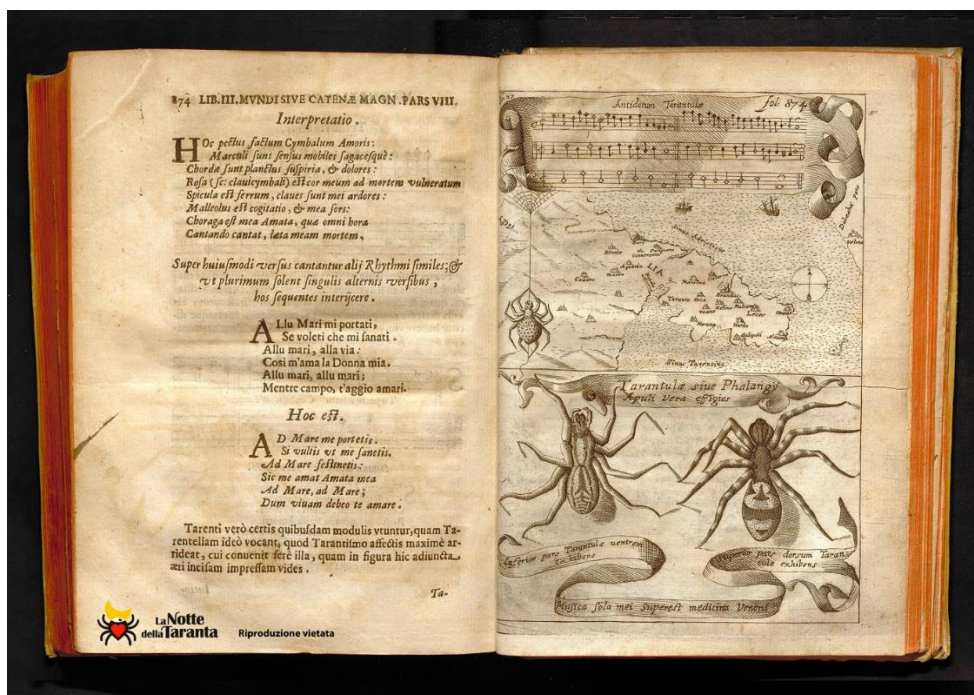 874 LIB.III.MVNDI SIVE CATENÆ MAGN .PARS VIII.
Interpretatio .
HOc pectus factum Cymbalum Amoris:
Marculi sunt sensus mobiles sagacesquè:
Chordæ sunt planctus suspiria, & dolores:
Rosa (sc: clauicymbali) est cor meum ad mortem vulneratum
Spicula est ferrum, claues sunt mei ardores:
Malleolus est cogitatio, & mea sors:
Choraga est mea Amata, quæ omni hora
Cantando cantat, læta meam mortem,
Super huiusmodi versus cantantur alij Rhythmi similes; &
vt plurimum solent singulis alternis versibus,
hos sequentes interijcere.
ALlu Mari mi portati,
Se voleti che mi sanati.
Allu mari, alla via:
Così m'ama la Donna mia.
Allu mari, allu mari;
Mentre campo, t'aggio amari.
Hoc est.
AD Mare me portetis.
Si vultis vt me sanetis.
Ad Mare festinetis:
Sic me amat Amata mea
Ad Mare, ad Mare;
Dum viuam debeo te amare.
Tarenti verò certis quibusdam modulis vtuntur,quam Ta-
rentellam ideò vocant, quod Tarantismo affectis maximè ar-
rideat, cui conuenit ferè illa, quam in figura hic adiuncta
æri incisam impressam vides.
Ta-
La Notte
della Taranta
Riproduzione vietata
Antidotum Tarantulæ
fol: 874
Sinus Adriaticus
LIA
Taranto
Lecce
Sinus Tarentinus
Tarantulæ sive Phalangij
Apuli Vera effigies
Inferior pars Tarantulæ ventrem
exhibens
Superior pars dorsum Taran
tulæ exhibens
Musica sola mei Superest medicina Veneni